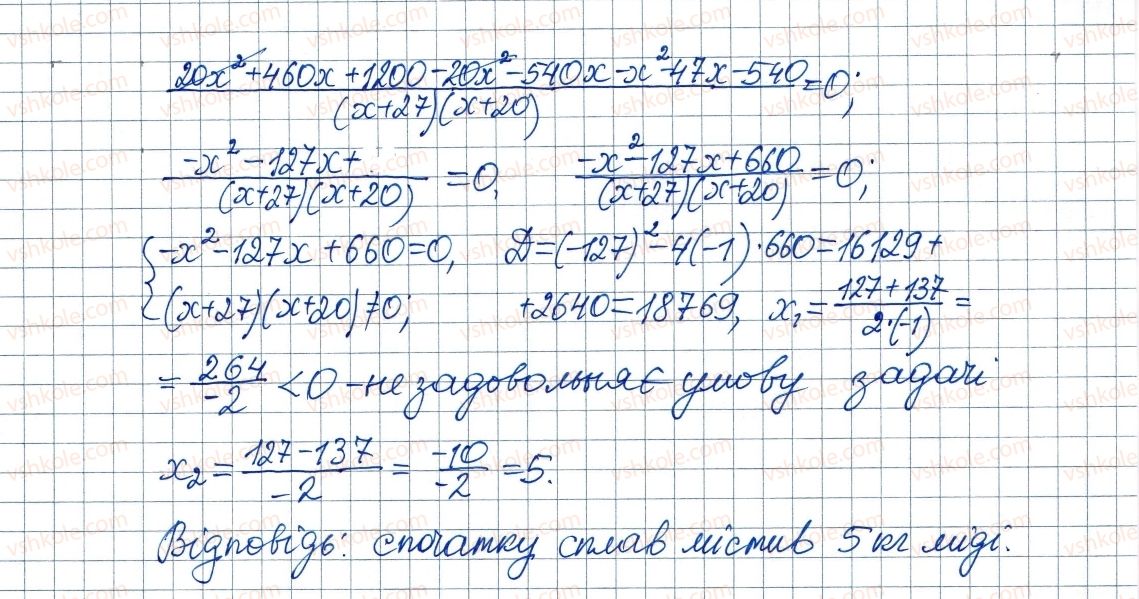 (20x² + 460x + 1200 - 20x² - 540x - x² - 47x - 540)/((x+27)(x+20)) = 0;
(-x² - 127x +)/((x+27)(x+20)) = 0,  (-x² - 127x + 660)/((x+27)(x+20)) = 0;
{ -x² - 127x + 660 = 0,  Д = (-127)² - 4(-1)·660 = 16129 +
(x+27)(x+20) ≠ 0;  + 2640 = 18769,  x₁ = (127 + 137)/(2·(-1)) =
= 264/-2 < 0 - не задовольняє умову задачі
x₂ = (127 - 137)/-2 = -10/-2 = 5.
Відповідь: спочатку сплав містив 5 кг міді.